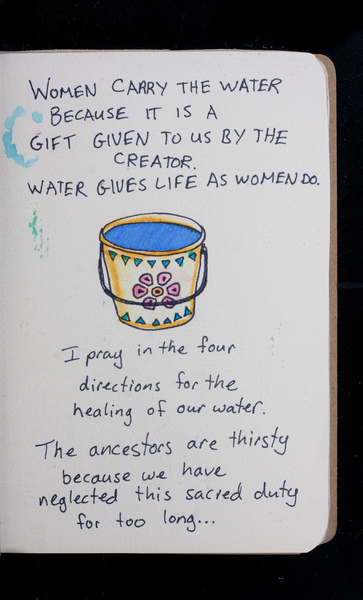 WOMEN CARRY THE WATER
BECAUSE IT IS A
GIFT GIVEN TO US BY THE
CREATOR.
WATER GIVES LIFE AS WOMEN DO.
I pray in the four
directions for the
healing of our water.
The ancestors are thirsty
because we have
neglected this sacred duty
for too long...